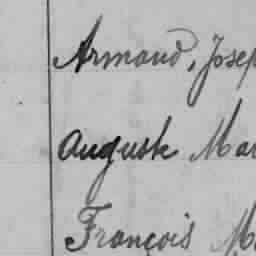 Armand, Josep
Auguste Mar
François M